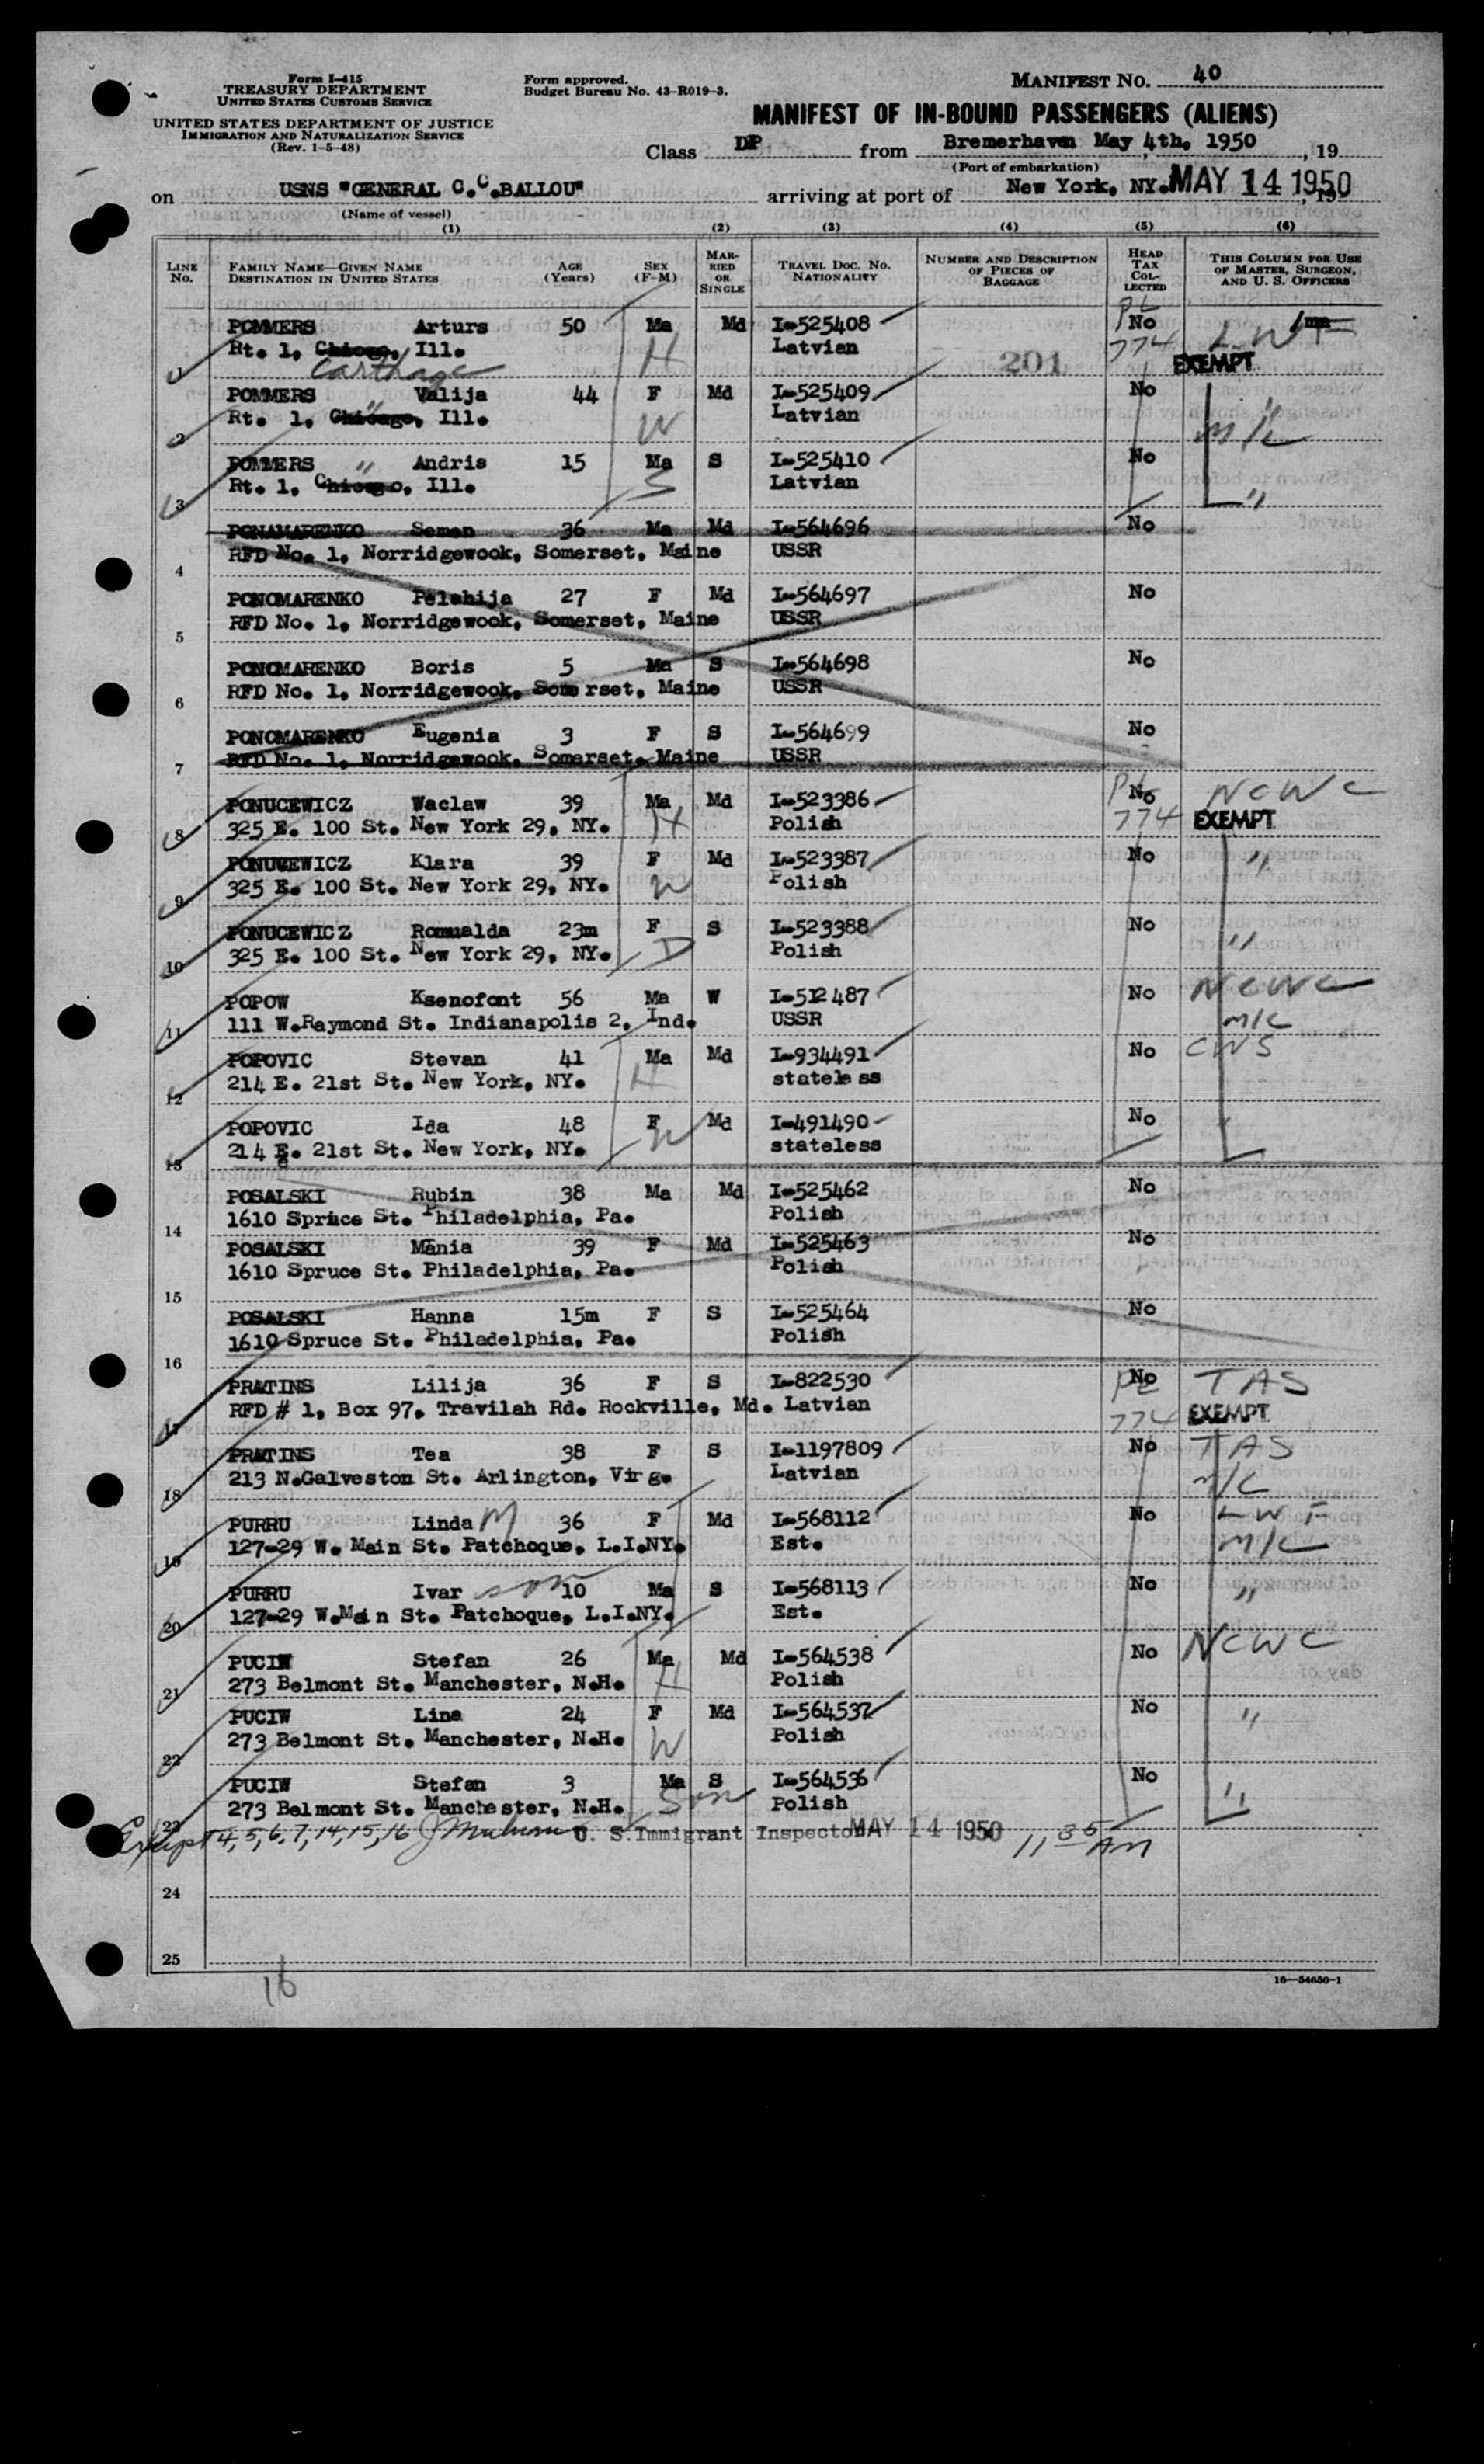 Form I-415
TREASURY DEPARTMENT
UNITED STATES CUSTOMS SERVICE
UNITED STATES DEPARTMENT OF JUSTICE
IMMIGRATION AND NATURALIZATION SERVICE
(Rev. 1-5-48)
Form approved.
Budget Bureau No. 43-R019-3.
MANIFEST No. 40
MANIFEST OF IN-BOUND PASSENGERS (ALIENS)
Class DP from Bremerhaven May 4th, 1950, 19
(Port of embarkation)
on USNS "GENERAL C.C.BALLOU" arriving at port of New York, NY. MAY 14 1950, 19
(Name of vessel)
(1) (2) (3) (4) (5) (6)
LINE No. FAMILY NAME—GIVEN NAME DESTINATION IN UNITED STATES AGE (Years) SEX (F-M) MARRIED OR SINGLE TRAVEL DOC. NO. NATIONALITY NUMBER AND DESCRIPTION OF PIECES OF BAGGAGE HEAD TAX COLLECTED THIS COLUMN FOR USE OF MASTER, SURGEON, AND U. S. OFFICERS
POMMERS Arturs 50 Ma Md I-525408 PL No LWF
1 Rt. 1, Chicago, Ill. H Latvian 201 774 EXEMPT
Carthage
POMMERS Valija 44 F Md I-525409 No "
2 Rt. 1, Chicago, " Ill. W Latvian M/C
POMMERS " Andris 15 Ma S I-525410 No
3 Rt. 1, Chicago, Ill. S Latvian "
PONAMARENKO Semen 36 Ma Md I-564696 No
4 RFD No. 1, Norridgewook, Somerset, Maine USSR
PONOMARENKO Pelahija 27 F Md I-564697 No
5 RFD No. 1, Norridgewook, Somerset, Maine USSR
PONOMARENKO Boris 5 Ma S I-564698 No
6 RFD No. 1, Norridgewook, Somerset, Maine USSR
PONOMARENKO Eugenia 3 F S I-564699 No
7 RFD No. 1, Norridgewook, Somerset, Maine USSR
PONUCEWICZ Waclaw 39 Ma Md I-523386 PL No NCWC
8 325 E. 100 St. New York 29, NY. H Polish 774 EXEMPT
PONUCEWICZ Klara 39 F Md I-523387 No "
9 325 E. 100 St. New York 29, NY. W Polish
PONUCEWICZ Romualda 23m F S I-523388 No "
10 325 E. 100 St. New York 29, NY. D Polish
POPOW Ksenofont 56 Ma W I-512487 No NCWC
11 111 W.Raymond St. Indianapolis 2, Ind. USSR M/C
POPOVIC Stevan 41 Ma Md I-934491 No CWS
12 214 E. 21st St. New York, NY. H stateless
POPOVIC Ida 48 F Md I-491490 No "
13 214 E. 21st St. New York, NY. W stateless
POSALSKI Rubin 38 Ma Md I-525462 No
14 1610 Spruce St. Philadelphia, Pa. Polish
POSALSKI Mania 39 F Md I-525463 No
15 1610 Spruce St. Philadelphia, Pa. Polish
POSALSKI Hanna 15m F S I-525464 No
16 1610 Spruce St. Philadelphia, Pa. Polish
PRATINS Lilija 36 F S I-822530 PL No TAS
17 RFD # 1, Box 97, Travilah Rd. Rockville, Md. Latvian 774 EXEMPT
PRATINS Tea 38 F S I-1197809 No TAS
18 213 N.Galveston St. Arlington, Virg. Latvian M/C
PURRU Linda M 36 F Md I-568112 No LWF
19 127-29 W. Main St. Patchoque, L.I.NY. Est. M/C
PURRU Ivar son 10 Ma S I-568113 No "
20 127-29 W.Main St. Patchoque, L.I.NY. Est.
PUCIW Stefan 26 Ma Md I-564538 No NCWC
21 273 Belmont St. Manchester, N.H. H Polish
PUCIW Lina 24 F Md I-564537 No "
22 273 Belmont St. Manchester, N.H. W Polish
PUCIW Stefan 3 Ma S I-564536 No "
23 273 Belmont St. Manchester, N.H. Son Polish
Except 4, 5, 6, 7, 14, 15, 16 U. S. Immigrant Inspector MAY 14 1950 11 35 AM
24
25
16
16—54650-1